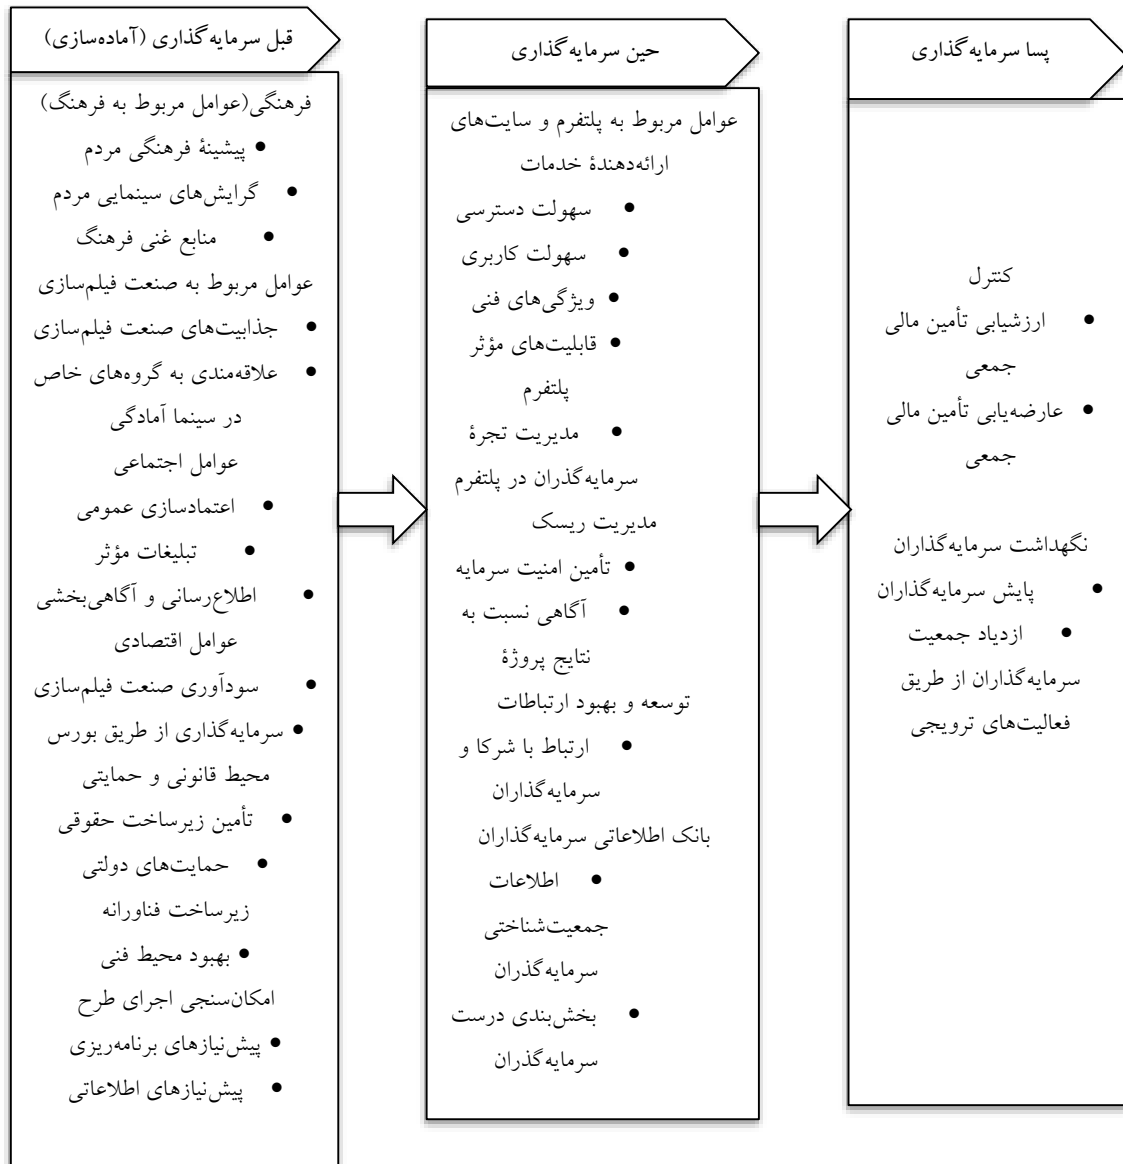 قبل سرمایه‌گذاری (آماده‌سازی)
فرهنگی(عوامل مربوط به فرهنگ)
● پیشینۀ فرهنگی مردم
● گرایش‌های سینمایی مردم
● منابع غنی فرهنگ
عوامل مربوط به صنعت فیلم‌سازی
● جذابیت‌های صنعت فیلم‌سازی
● علاقه‌مندی به گروه‌های خاص
در سینما آمادگی
عوامل اجتماعی
● اعتمادسازی عمومی
● تبلیغات مؤثر
● اطلاع‌رسانی و آگاهی‌بخشی
عوامل اقتصادی
● سودآوری صنعت فیلم‌سازی
● سرمایه‌گذاری از طریق بورس
محیط قانونی و حمایتی
● تأمین زیرساخت حقوقی
● حمایت‌های دولتی
زیرساخت فناورانه
● بهبود محیط فنی
امکان‌سنجی اجرای طرح
● پیش‌نیازهای برنامه‌ریزی
● پیش‌نیازهای اطلاعاتی
حین سرمایه‌گذاری
عوامل مربوط به پلتفرم و سایت‌های
ارائه‌دهندۀ خدمات
● سهولت دسترسی
● سهولت کاربری
● ویژگی‌های فنی
● قابلیت‌های مؤثر
پلتفرم
● مدیریت تجرۀ
سرمایه‌گذران در پلتفرم
مدیریت ریسک
● تأمین امنیت سرمایه
● آگاهی نسبت به
نتایج پروژۀ
توسعه و بهبود ارتباطات
● ارتباط با شرکا و
سرمایه‌گذاران
بانک اطلاعاتی سرمایه‌گذاران
● اطلاعات
جمعیت‌شناختی
سرمایه‌گذران
● بخش‌بندی درست
سرمایه‌گذران
پسا سرمایه‌گذاری
کنترل
● ارزشیابی تأمین مالی
جمعی
● عارضه‌یابی تأمین مالی
جمعی
نگهداشت سرمایه‌گذاران
● پایش سرمایه‌گذاران
● ازدیاد جمعیت
سرمایه‌گذاران از طریق
فعالیت‌های ترویجی